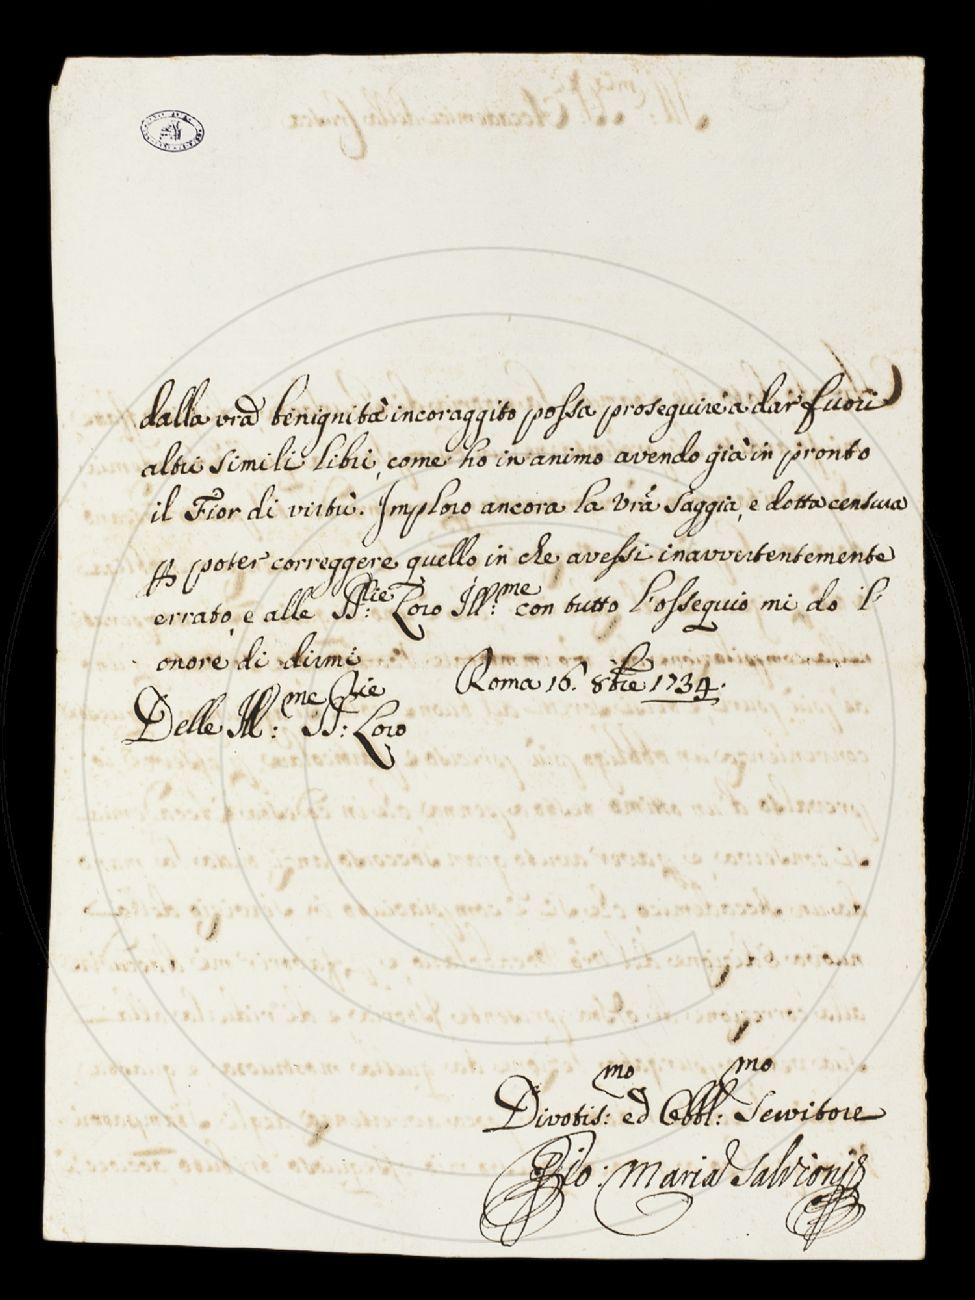 dalla vrã benignità incoraggito possa proseguire a dar fuori
altri simili libri, come ho in animo avendo già in pronto
il Fior di virtù. Imploro ancora la vrã saggia, e dotta censura
per poter correggere quello in che avessi inavvertentemente
errato, e alle SS:rie Loro Ill:me con tutto l'ossequio mi do l'
onore di dirmi
Roma 16. 8bre 1734.
Delle Ill:me SS:rie Loro
Divotis:mo ed Obbl:mo Servitore
Gio: Maria Salvioni